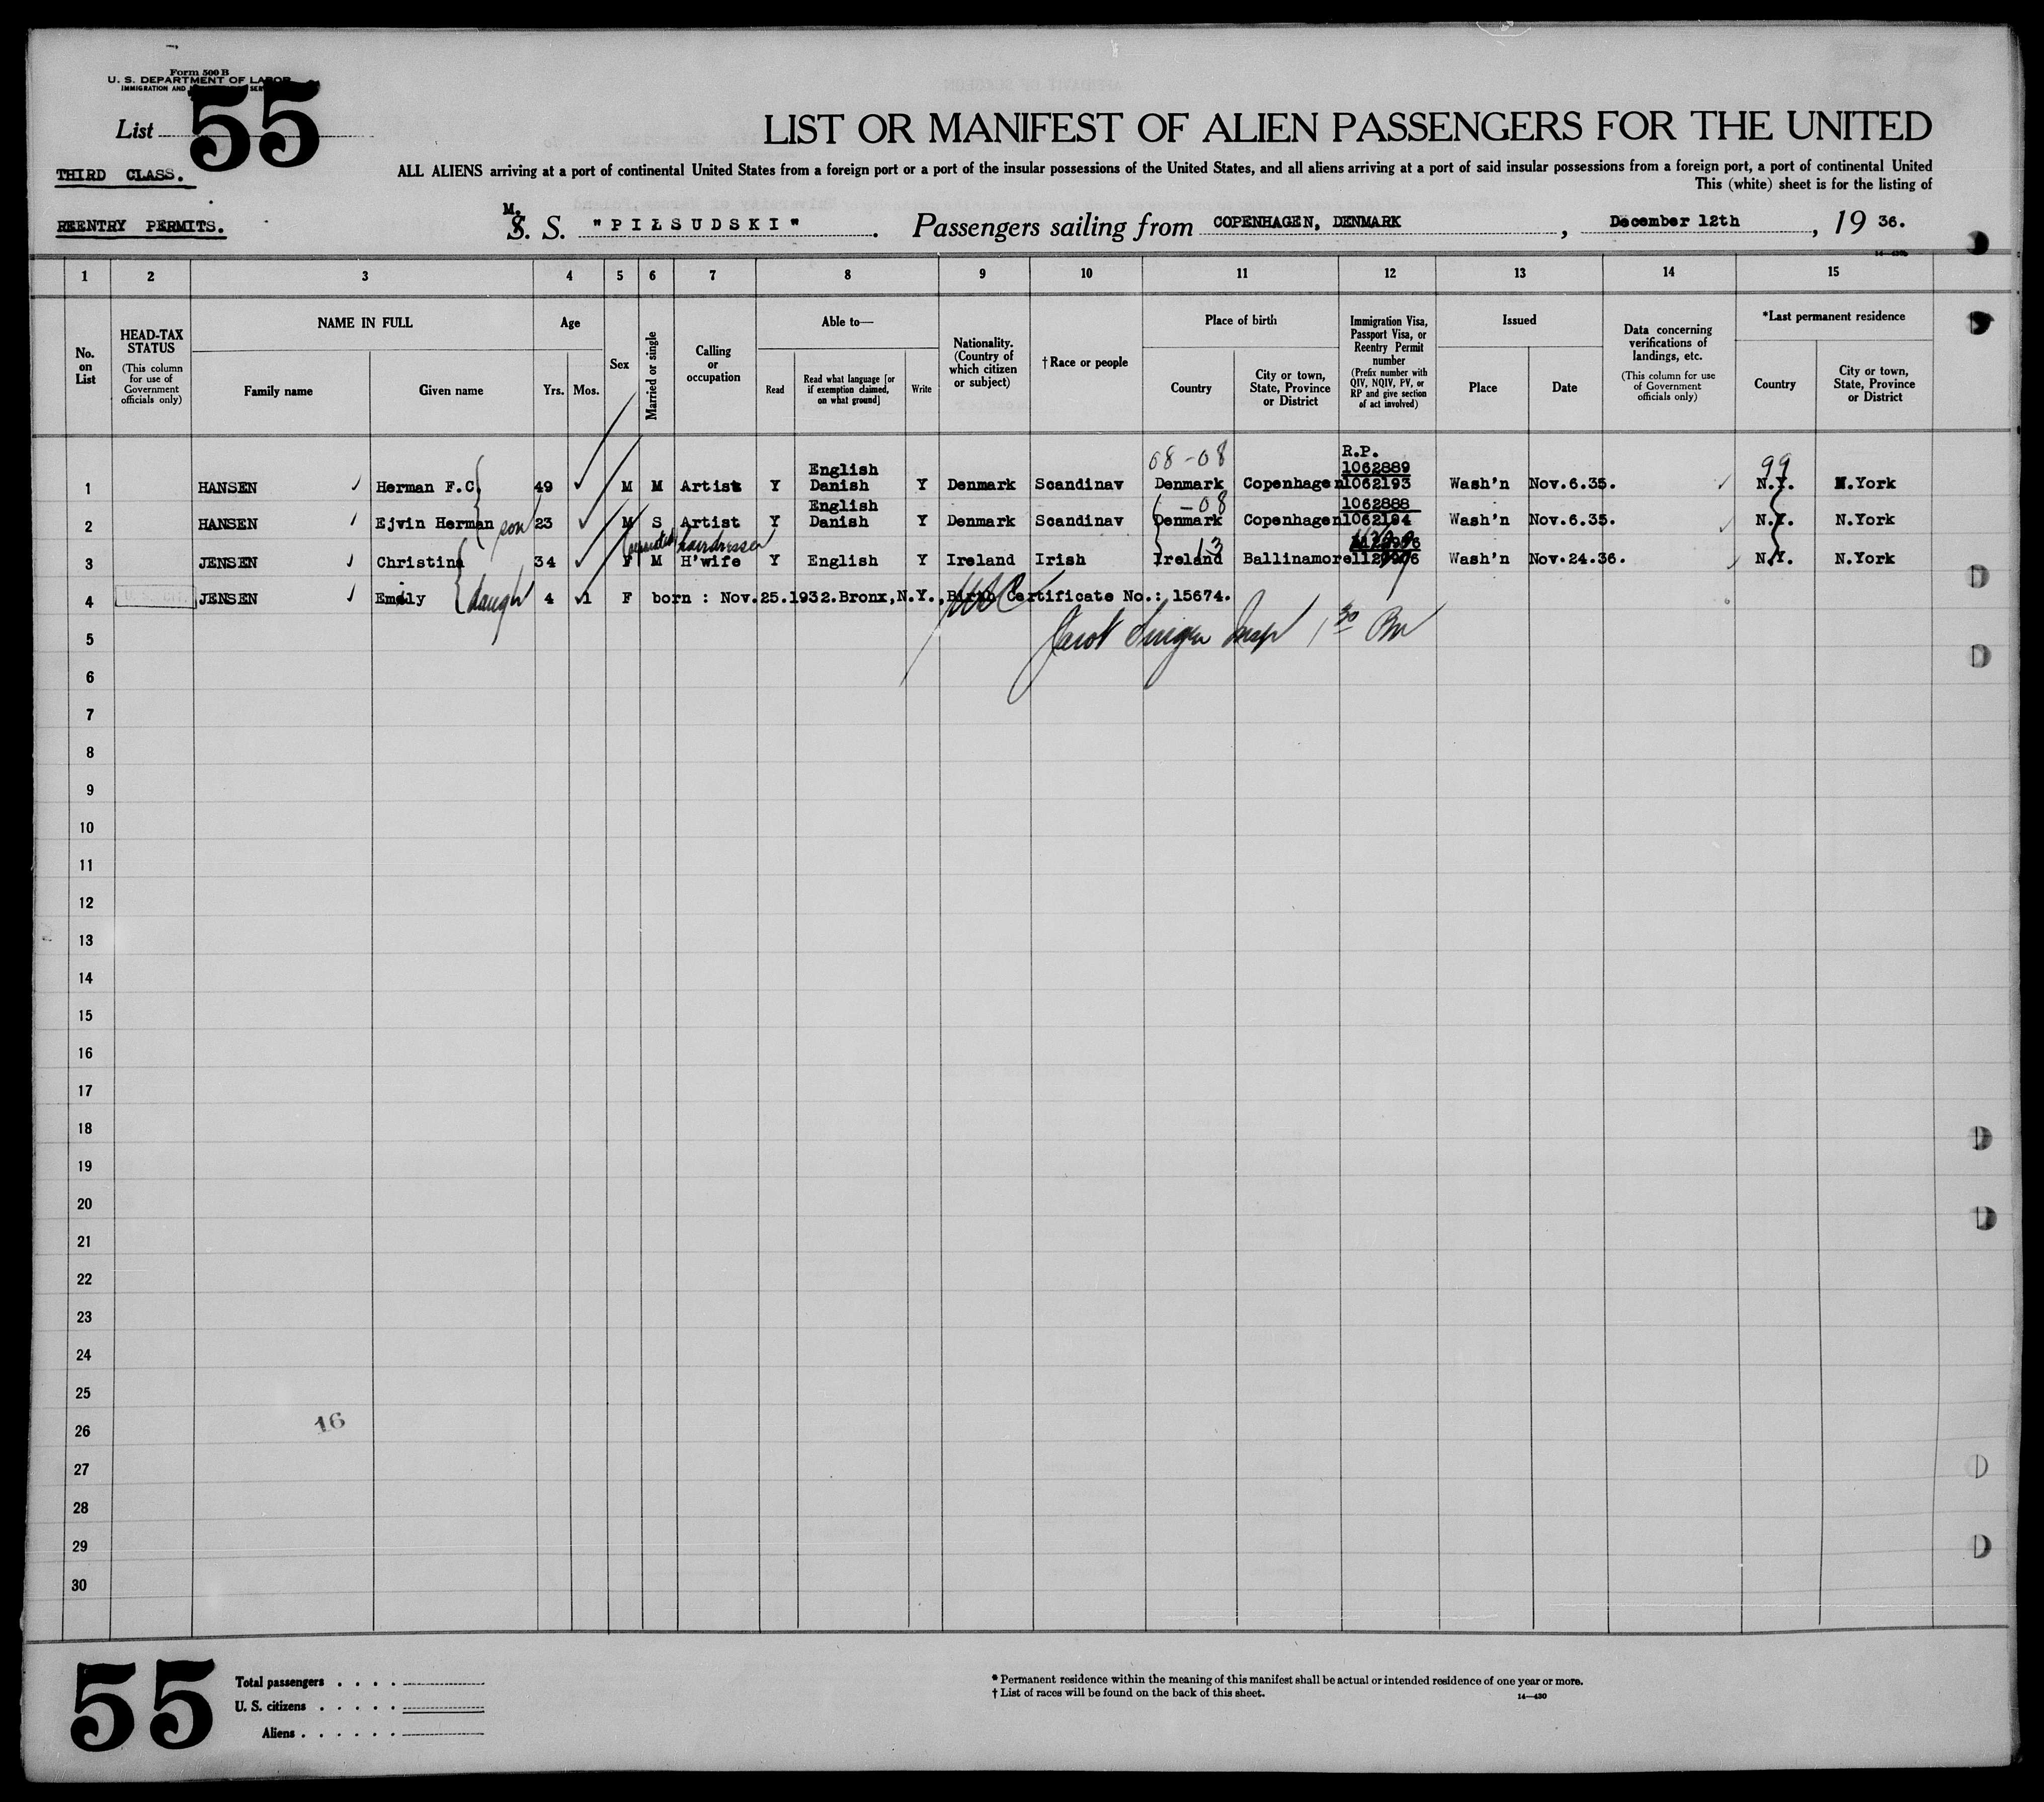 Form 500 B
U. S. DEPARTMENT OF LABOR
IMMIGRATION AND
List 55
THIRD CLASS.
REENTRY PERMITS.
LIST OR MANIFEST OF ALIEN PASSENGERS FOR THE UNITED
ALL ALIENS arriving at a port of continental United States from a foreign port or a port of the insular possessions of the United States, and all aliens arriving at a port of said insular possessions from a foreign port, a port of continental United
This (white) sheet is for the listing of
M.
S. S. "PIŁSUDSKI". Passengers sailing from COPENHAGEN, DENMARK, December 12th, 19 36.
14-430
1 2 3 4 5 6 7 8 9 10 11 12 13 14 15
No. on List
HEAD-TAX STATUS
(This column for use of Government officials only)
NAME IN FULL
Family name
Given name
Age
Yrs.
Mos.
Sex
Married or single
Calling or occupation
Able to—
Read
Read what language [or if exemption claimed, on what ground]
Write
Nationality. (Country of which citizen or subject)
†Race or people
Place of birth
Country
City or town, State, Province or District
Immigration Visa, Passport Visa, or Reentry Permit number
(Prefix number with QIV, NQIV, PV, or RP and give section of act involved)
Issued
Place
Date
Data concerning verifications of landings, etc.
(This column for use of Government officials only)
*Last permanent residence
Country
City or town, State, Province or District
08-08 R.P. 99
English 1062889
1 HANSEN Herman F.C. 49 M M Artist Y Danish Y Denmark Scandinav Denmark Copenhagen 1062193 Wash'n Nov.6.35. N.Y. N.York
English -08 1062888
2 HANSEN Ejvin Herman son 23 M S Artist Y Danish Y Denmark Scandinav Denmark Copenhagen 1062194 Wash'n Nov.6.35. N.Y. N.York
hairdresser 13
3 JENSEN Christina 34 F M H'wife Y English Y Ireland Irish Ireland Ballinamore Wash'n Nov.24.36. N.Y. N.York
4 JENSEN Emily daugh 4 1 F born : Nov.25.1932.Bronx,N.Y.,Birth Certificate No.: 15674.
USC
5
6
7
8
9
10
11
12
13
14
15
16
17
18
19
20
21
22
23
24
25
16
26
27
28
29
30
55
Total passengers
U. S. citizens
Aliens
* Permanent residence within the meaning of this manifest shall be actual or intended residence of one year or more.
† List of races will be found on the back of this sheet.
14—430